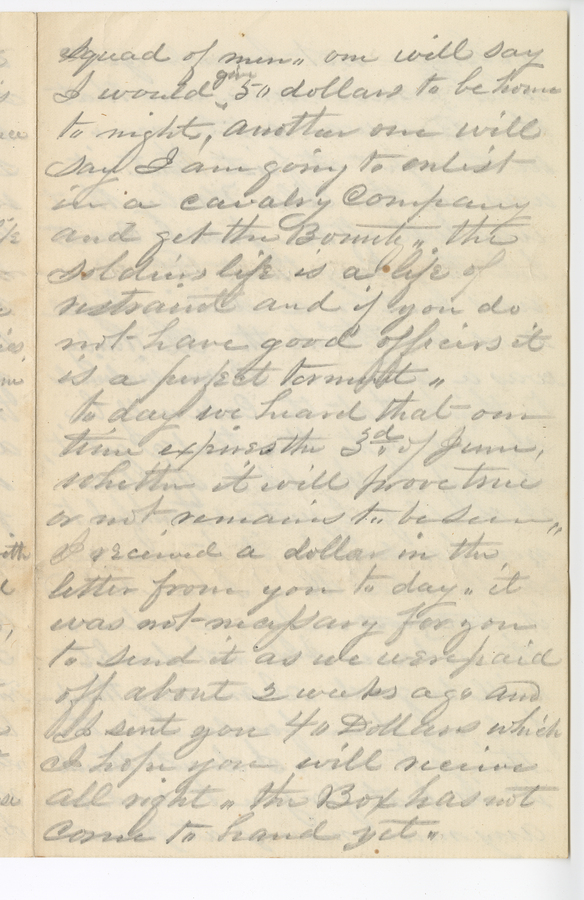 Squad of men,, one will say
I would give 50 dollars to be home
to night, another one will
say I am going to enlist
in a cavalry Company
and get the Bounty,, the
soldiers life is a life of
restraint and if you do
not have good officers it
is a perfect torment "
to day we heard that our
time expires the 3rd of June,
whether it will prove true
or not remains to be seen,,
I received a dollar in the
letter from you to day,, it
was not necessary for you
to send it as we were paid
off about 2 weeks ago and
I sent you 40 Dollars which
I hope you will receive
all right,, the Box has not
come to hand yet "